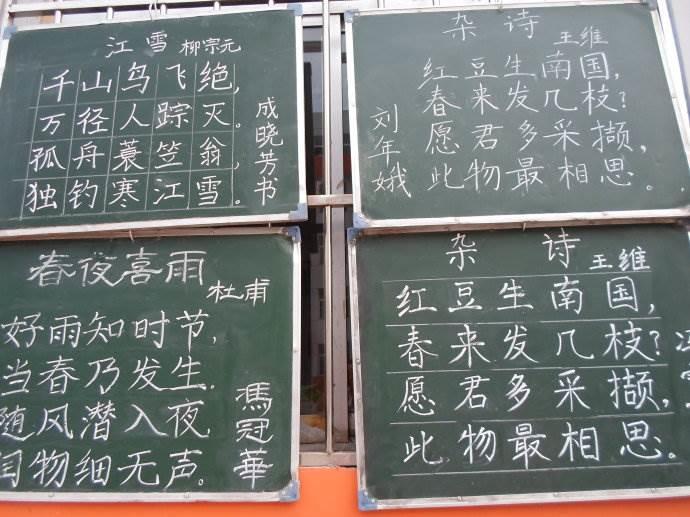 江雪 柳宗元
千山鸟飞绝,
万径人踪灭。
孤舟蓑笠翁,
独钓寒江雪。
成晓芳书
杂诗
王维
红豆生南国,
春来发几枝?
愿君多采撷,
此物最相思。
刘年娥
春夜喜雨
杜甫
好雨知时节,
当春乃发生.
随风潜入夜
物细无声。
馮冠華
杂诗
王维
红豆生南国,
春来发几枝?
愿君多采撷,
此物最相思。